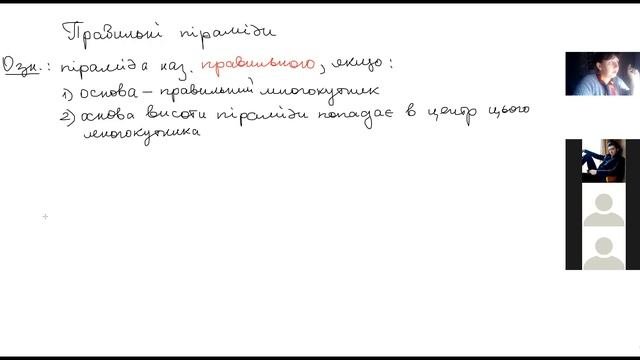 Правильні піраміди
Озн.: піраміда наз. правильною, якщо:
1) основа – правильний многокутник
2) основа висоти піраміди попадає в центр цього
многокутника